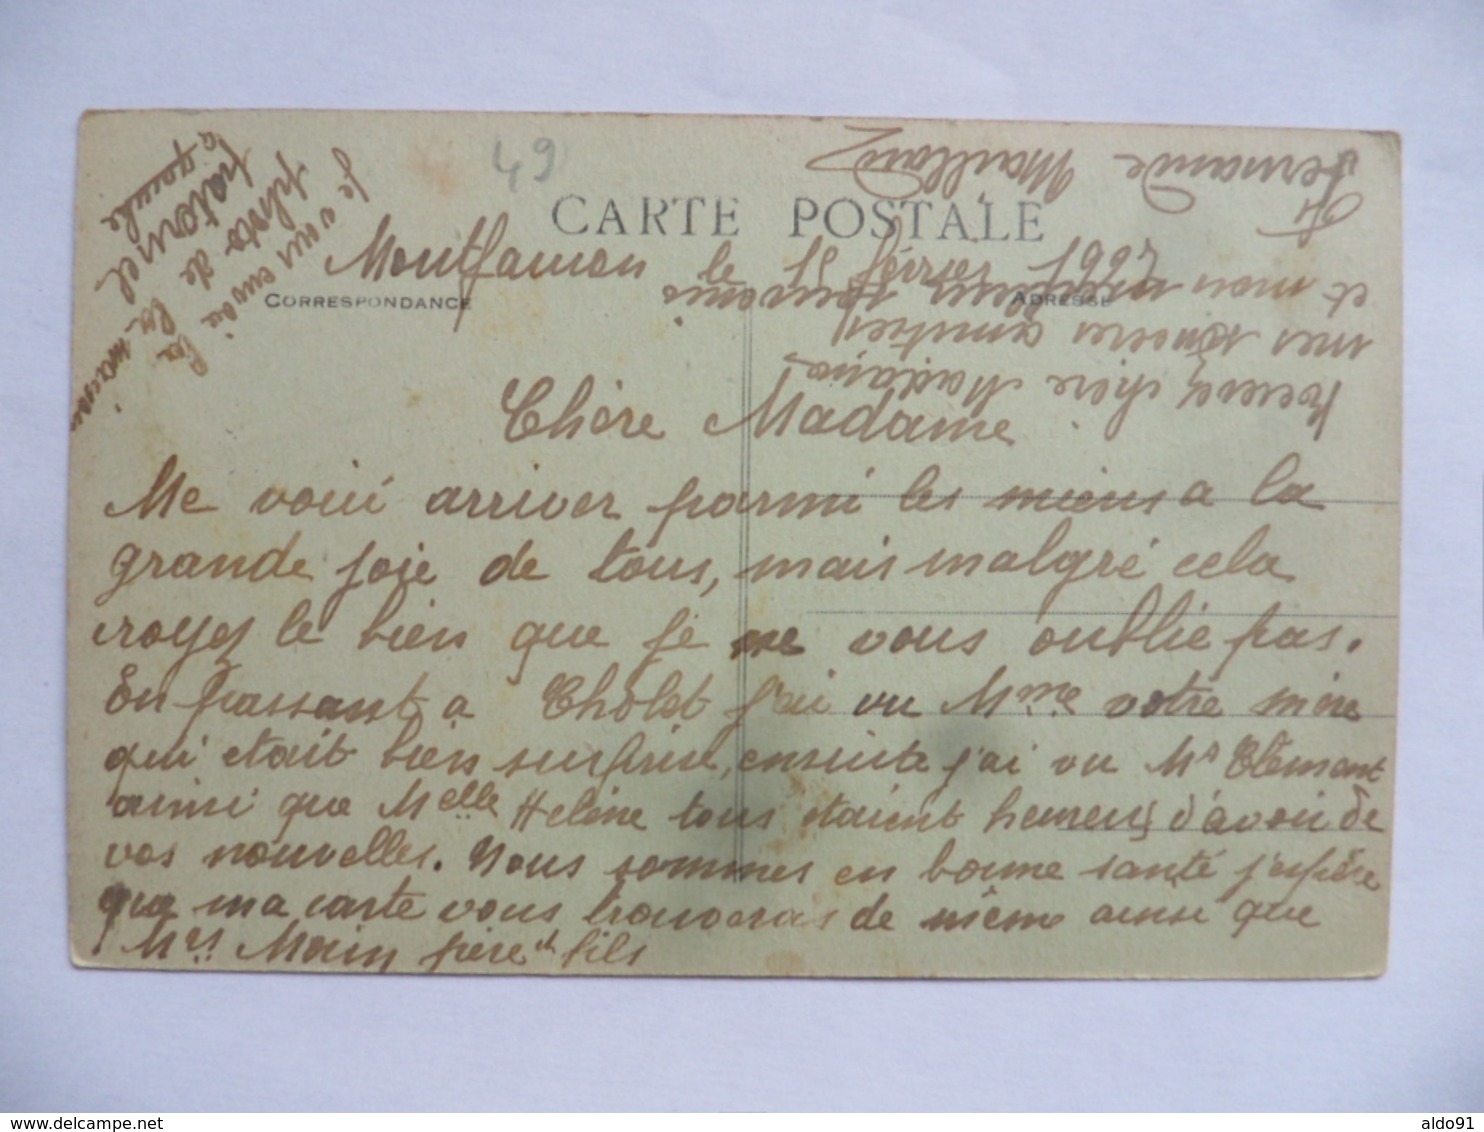 49
CARTE POSTALE
Montfaucon le 15 février 1927
CORRESPONDANCE
ADRESSE
Chère Madame
Me voici arriver parmi les miens a la
grande joie de tous, mais malgré cela
croyez le bien que je ne vous oublie pas.
En passant a Cholet j'ai vu Mme votre mère
qui etait bien surprise, ensuite j'ai vu Mr Clémont
ainsi que Melle Helène tous étaient heureux d'avoir de
vos nouvelles. Nous sommes en bonne santé j'espère
que ma carte vous trouveras de même ainsi que
Mrs Morin père et fils
Recevez chère Madame
mes sincères amitiés
et mon meilleur souvenir
Fernande
Maillard
Je vous envoie la
photo de la maison
paternel
a gauche
aldo91